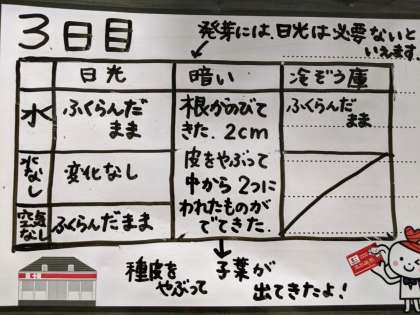 3日目
発芽には、日光は必要ないと
いえます。
日光
暗い
冷ぞう庫
水
ふくらんだ
まま
根がのびて
きた。2cm
ふくらんだ
まま
水なし
変化なし
皮をやぶって
中から2つに
われたものが
でてきた。
空気なし
ふくらんだまま
種皮を
やぶって
子葉が
出てきたよ!